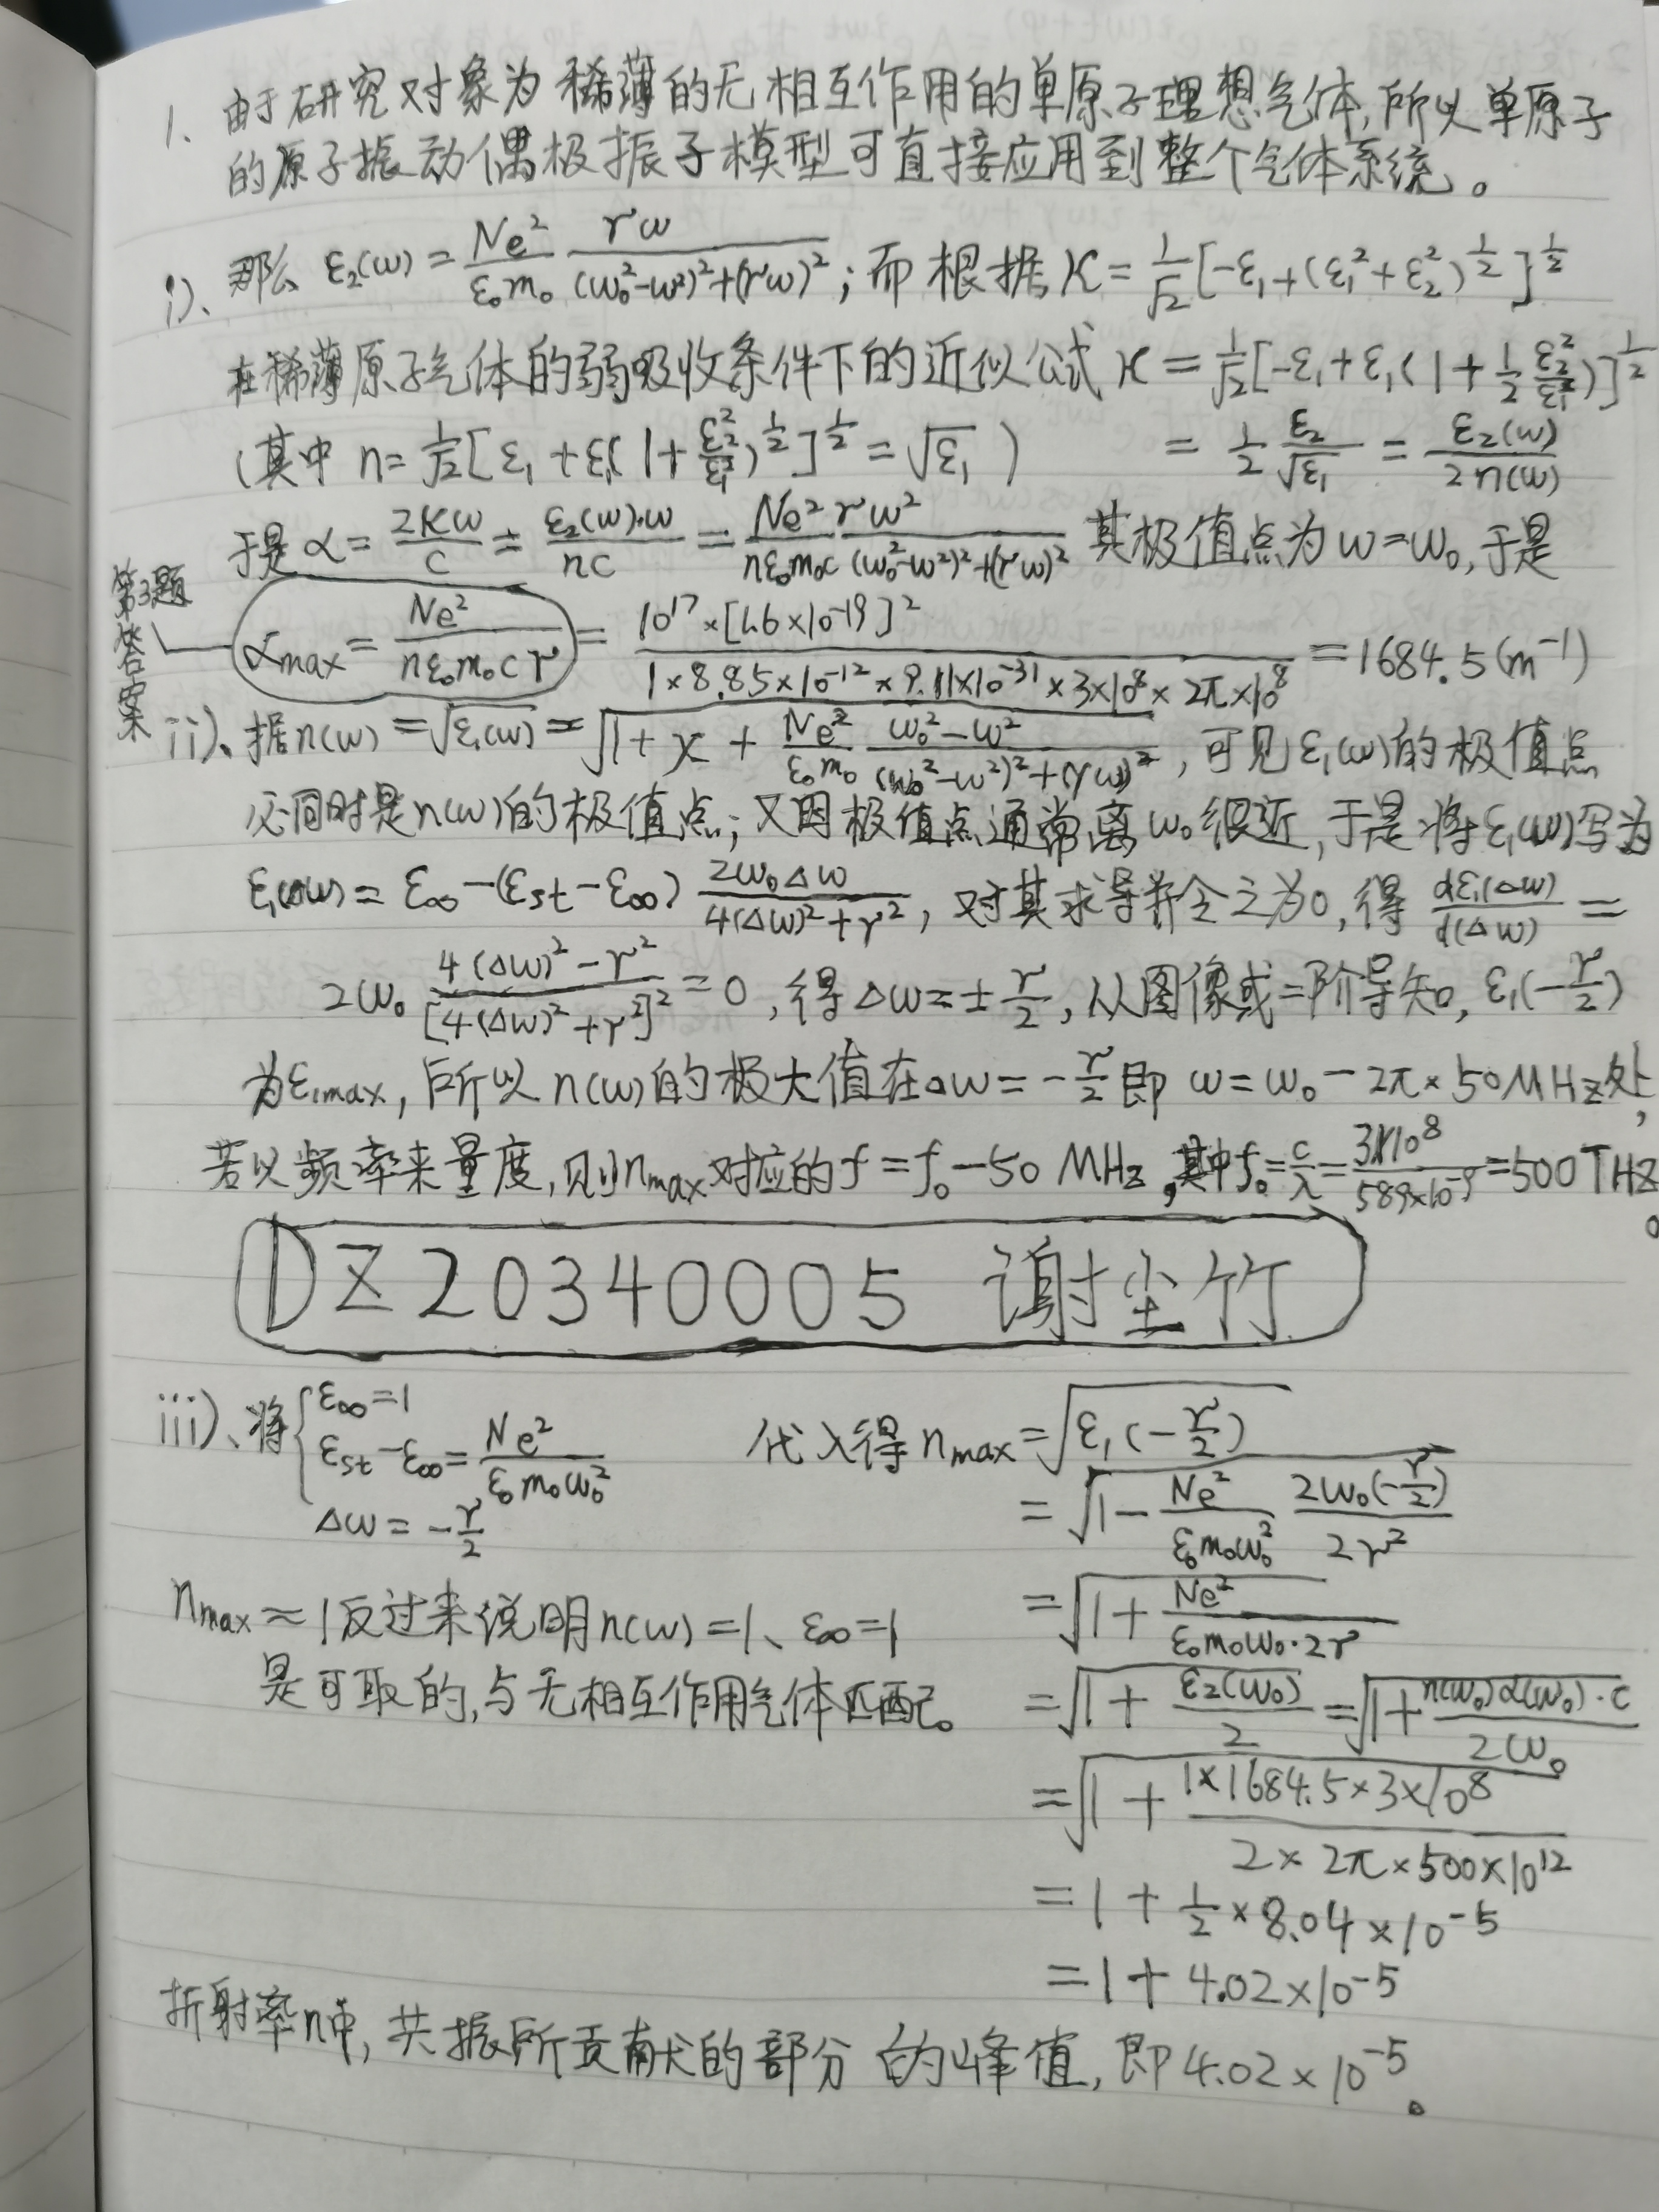 1. 由于研究对象为稀薄的无相互作用的单原子理想气体,所以单原子
的原子振动偶极振子模型可直接应用到整个气体系统。
i)、那么 ε₂(ω) = Ne²/(ε₀m₀) · γω/((ω₀²-ω²)²+(γω)²); 而根据 κ = 1/√2 [-ε₁+(ε₁²+ε₂²)^(1/2)]^(1/2)
在稀薄原子气体的弱吸收条件下的近似公式 κ = 1/√2 [-ε₁+ε₁(1+1/2 ε₂²/ε₁²)]^(1/2)
(其中 n = 1/√2 [ε₁+ε₁(1+ε₂²/ε₁²)^(1/2)]^(1/2) = √ε₁) = 1/2 ε₂/√ε₁ = ε₂(ω)/2n(ω)
于是 α = 2κω/c = ε₂(ω)·ω/nc = Ne²/(nε₀m₀c) · γω²/((ω₀²-ω²)²+(γω)²) 其极值点为 ω=ω₀,于是
第3题答案
αmax = Ne²/(nε₀m₀cγ) = 10¹⁷×[1.6×10⁻¹⁹]²/(1×8.85×10⁻¹²×9.11×10⁻³¹×3×10⁸×2π×10⁸) = 1684.5(m⁻¹)
ii)、据 n(ω) = √ε₁(ω) = √(1+χ+Ne²/(ε₀m₀) · (ω₀²-ω²)/((ω₀²-ω²)²+(γω)²)), 可见 ε₁(ω)的极值点
必同时是n(ω)的极值点; 又因极值点通常离ω₀很近,于是将ε₁(ω)写为
ε₁(Δω) = ε∞-(εst-ε∞) 2ω₀Δω/(4(Δω)²+γ²), 对其求导并令之为0,得 dε₁(Δω)/d(Δω) =
2ω₀ (4(Δω)²-γ²)/[4(Δω)²+γ²]² = 0, 得Δω=±γ/2, 从图像或二阶导知, ε₁(-γ/2)
为ε₁max, 所以n(ω)的极大值在Δω=-γ/2即 ω=ω₀-2π×50MHz处,
若以频率来量度,则nmax对应的f=f₀-50 MHz,其中f₀=c/λ=3×10⁸/589×10⁻⁹=500THz。
DZ20340005 谢尘竹
iii)、将 { ε∞=1
εst-ε∞ = Ne²/(ε₀m₀ω₀²) 代入得 nmax = √ε₁(-γ/2)
Δω = -γ/2
= √(1-Ne²/(ε₀m₀ω₀²) · 2ω₀(-γ/2)/2γ²)
nmax≈1反过来说明n(ω)=1、ε∞=1
= √(1+Ne²/(ε₀m₀ω₀·2γ))
是可取的,与无相互作用气体匹配。
= √(1+ε₂(ω₀)/2) = √(1+n(ω₀)α(ω₀)·c/2ω₀)
= √(1+1×1684.5×3×10⁸/(2×2π×500×10¹²))
= 1+1/2×8.04×10⁻⁵
= 1+4.02×10⁻⁵
折射率n中,共振所贡献的部分的峰值,即4.02×10⁻⁵。